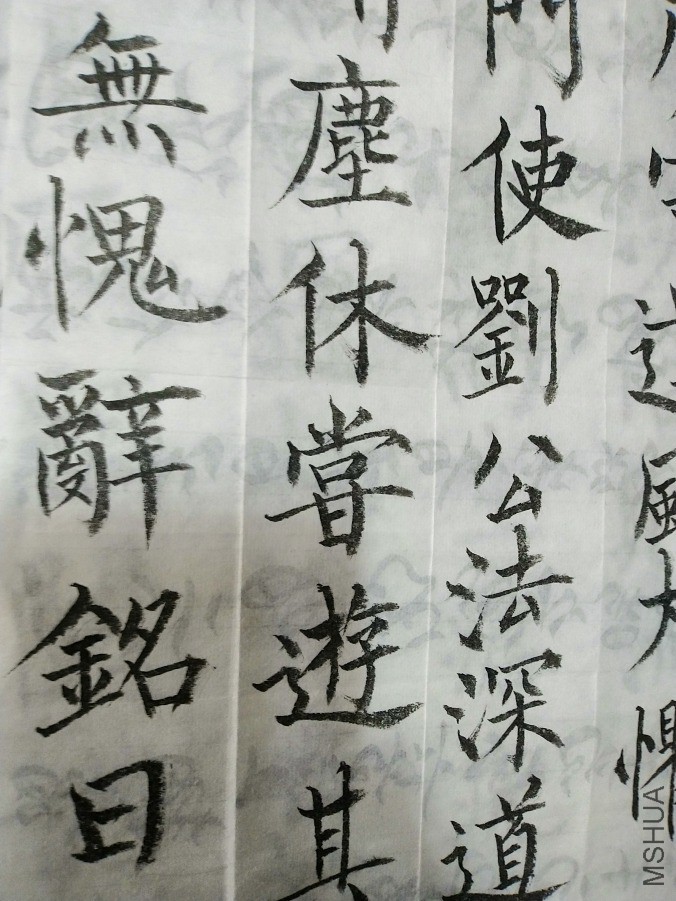 風大
門使劉公法深道
塵休嘗遊其
無愧辭銘曰
MSHUA